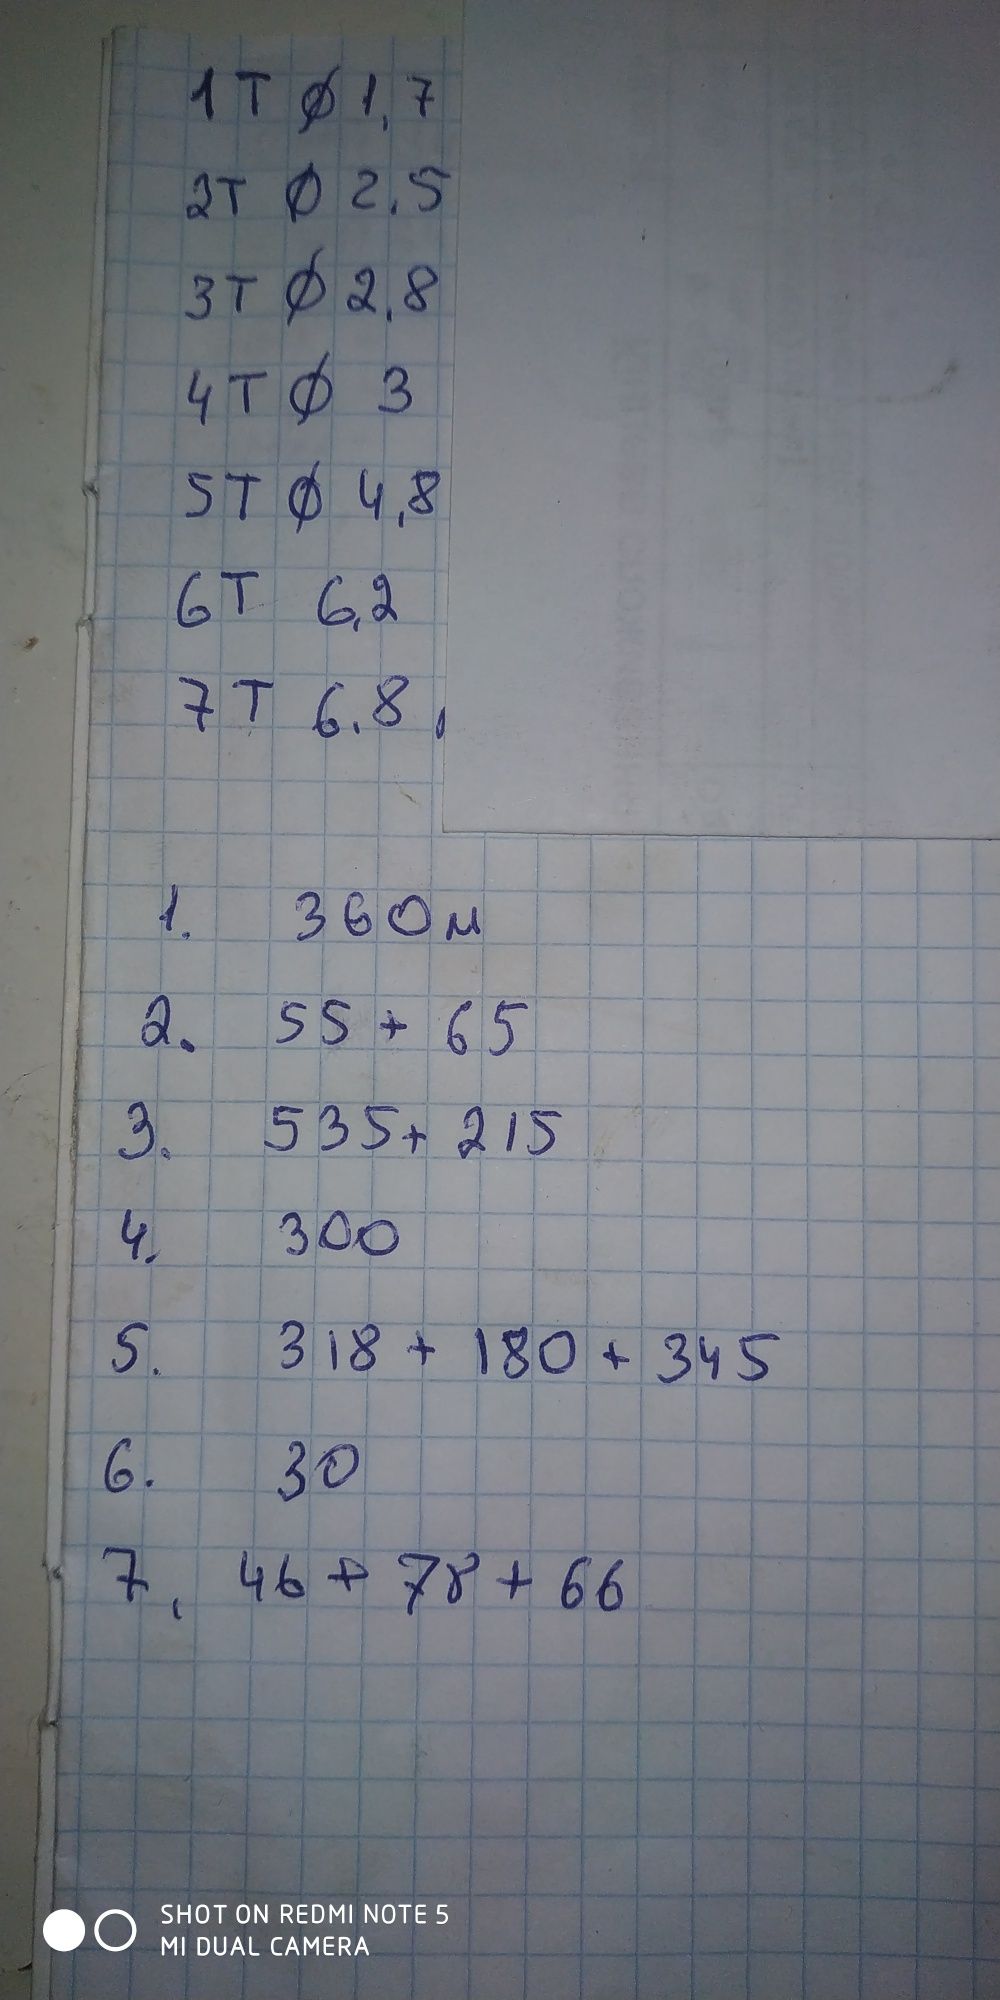 1T Ø 1,7
2T Ø 2.5
3T Ø 2,8
4T Ø 3
5T Ø 4,8
6T 6,2
7T 6.8,
1. 360м
2. 55 + 65
3. 535+ 215
4. 300
5. 318 + 180 + 345
6. 30
7, 46 + 78 + 66
SHOT ON REDMI NOTE 5
MI DUAL CAMERA